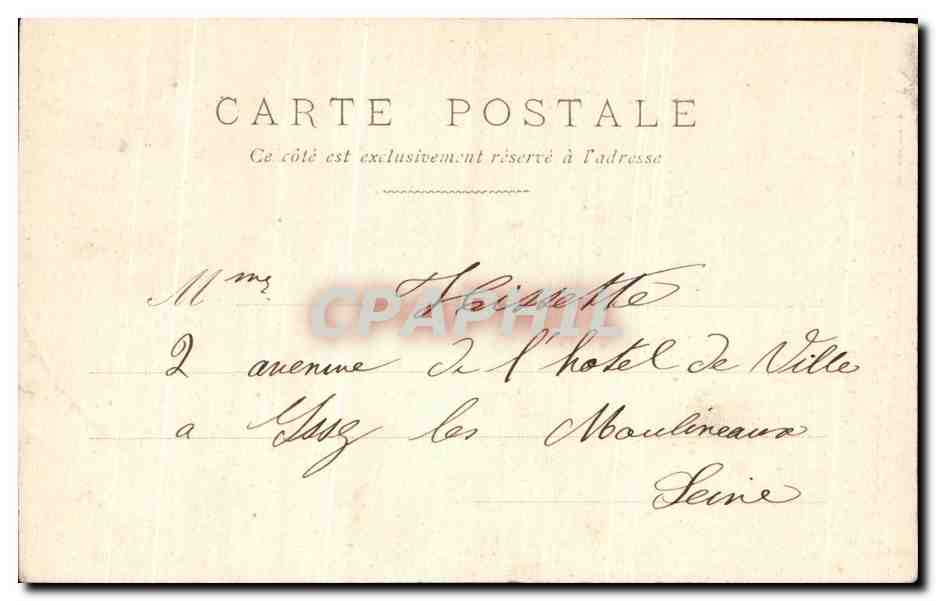 CARTE POSTALE
Ce côté est exclusivement réservé à l'adresse
Mme Thissette
CPAPHIL
2 avenue de l'hotel de Ville
a Issy les Moulineaux
Seine